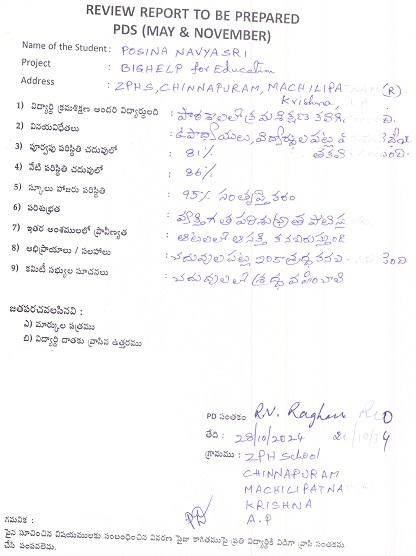 REVIEW REPORT TO BE PREPARED
PDS (MAY & NOVEMBER)
Name of the Student: POSINA NAVYASRI
Project : BIGHELP for Education
Address : ZPHS, CHINNAPURAM, MACHILIPATNAM (R)
Krishna, A.P
1) విద్యార్థి క్రమశిక్షణ అందరి విద్యార్థులది : పాఠశాలలో క్రమశిక్షణ కలిగి
2) వినయవిధేతలు : ఉపాధ్యాయులు, విద్యార్థుల పట్ల
3) పూర్వపు పరిస్థితి చదువులో : 81%
4) నేటి పరిస్థితి చదువులో : 86%
5) స్కూలు హాజరు పరిస్థితి : 95% సంతృప్తికరం
6) పరిశుభ్రత : వ్యక్తిగత పరిశుభ్రత
7) ఇతర అంశములలో ప్రావీణ్యత : ఆటలలో ఆసక్తి కనబరుస్తుంది
8) అభిప్రాయాలు / సలహాలు : చదువుల పట్ల ఇంకా శ్రద్ధ
9) కమిటీ సభ్యుల సూచనలు : చదువులలో శ్రద్ధ వహించాలి
జతపరచవలసినవి :
ఎ) మార్కుల పత్రము
బి) విద్యార్థి దాతకు వ్రాసిన ఉత్తరము
PD సంతకం : R.V. Raghava
తేది : 28/10/2024
గ్రామము : ZPH School
CHINNAPURAM
MACHILIPATNAM
KRISHNA
A.P
గమనిక :
పైన సూచించిన విషయములకు సంబంధించిన వివరణ పైజా కాగితముపై ప్రతి విద్యార్థికి విడిగా వ్రాసి సంతకము
చేసి పంపవలెను.